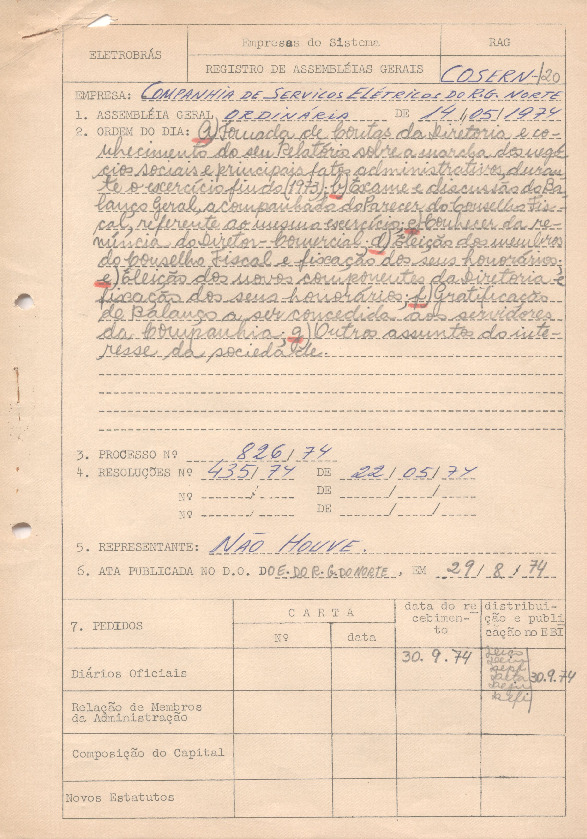 ELETROBRÁS
Empresas do Sistema
RAG
REGISTRO DE ASSEMBLÉIAS GERAIS
COSERN-/20
EMPRESA: COMPANHIA DE SERVIÇOS ELÉTRICOS DO R.G. NORTE
1. ASSEMBLÉIA GERAL ORDINÁRIA DE 14/05/1974
2. ORDEM DO DIA: a) Tomada de Contas da Diretoria e co-
nhecimento do seu Relatório sobre a marcha dos negó-
cios sociais e principais fatos administrativos, duran-
te o exercício findo (1973); b) Exame e discussão do Ba-
lanço Geral, acompanhado do Parecer do Conselho Fis-
cal, referente ao mesmo exercício; c) Conhecer da re-
núncia do Diretor-Comercial; d) Eleição dos membros
do Conselho Fiscal e fixação dos seus honorários;
e) Eleição dos novos componentes da Diretoria e
fixação dos seus honorários; f) Gratificação
de Balanço a ser concedida aos servidores
da Companhia; g) Outros assuntos do inte-
resse da sociedade.
3. PROCESSO Nº 826/74
4. RESOLUÇÕES Nº 435/74 DE 22/05/74
Nº / DE / /
Nº / DE / /
5. REPRESENTANTE: NÃO HOUVE.
6. ATA PUBLICADA NO D.O. DO E. DO R.G. DO NORTE, EM 29/8/74
7. PEDIDOS
CARTA
Nº
data
data do re
cebimen-
to
distribui-
ção e publi
cação no EBI
Diários Oficiais
30.9.74
30.9.74
Relação de Membros
da Administração
Composição do Capital
Novos Estatutos